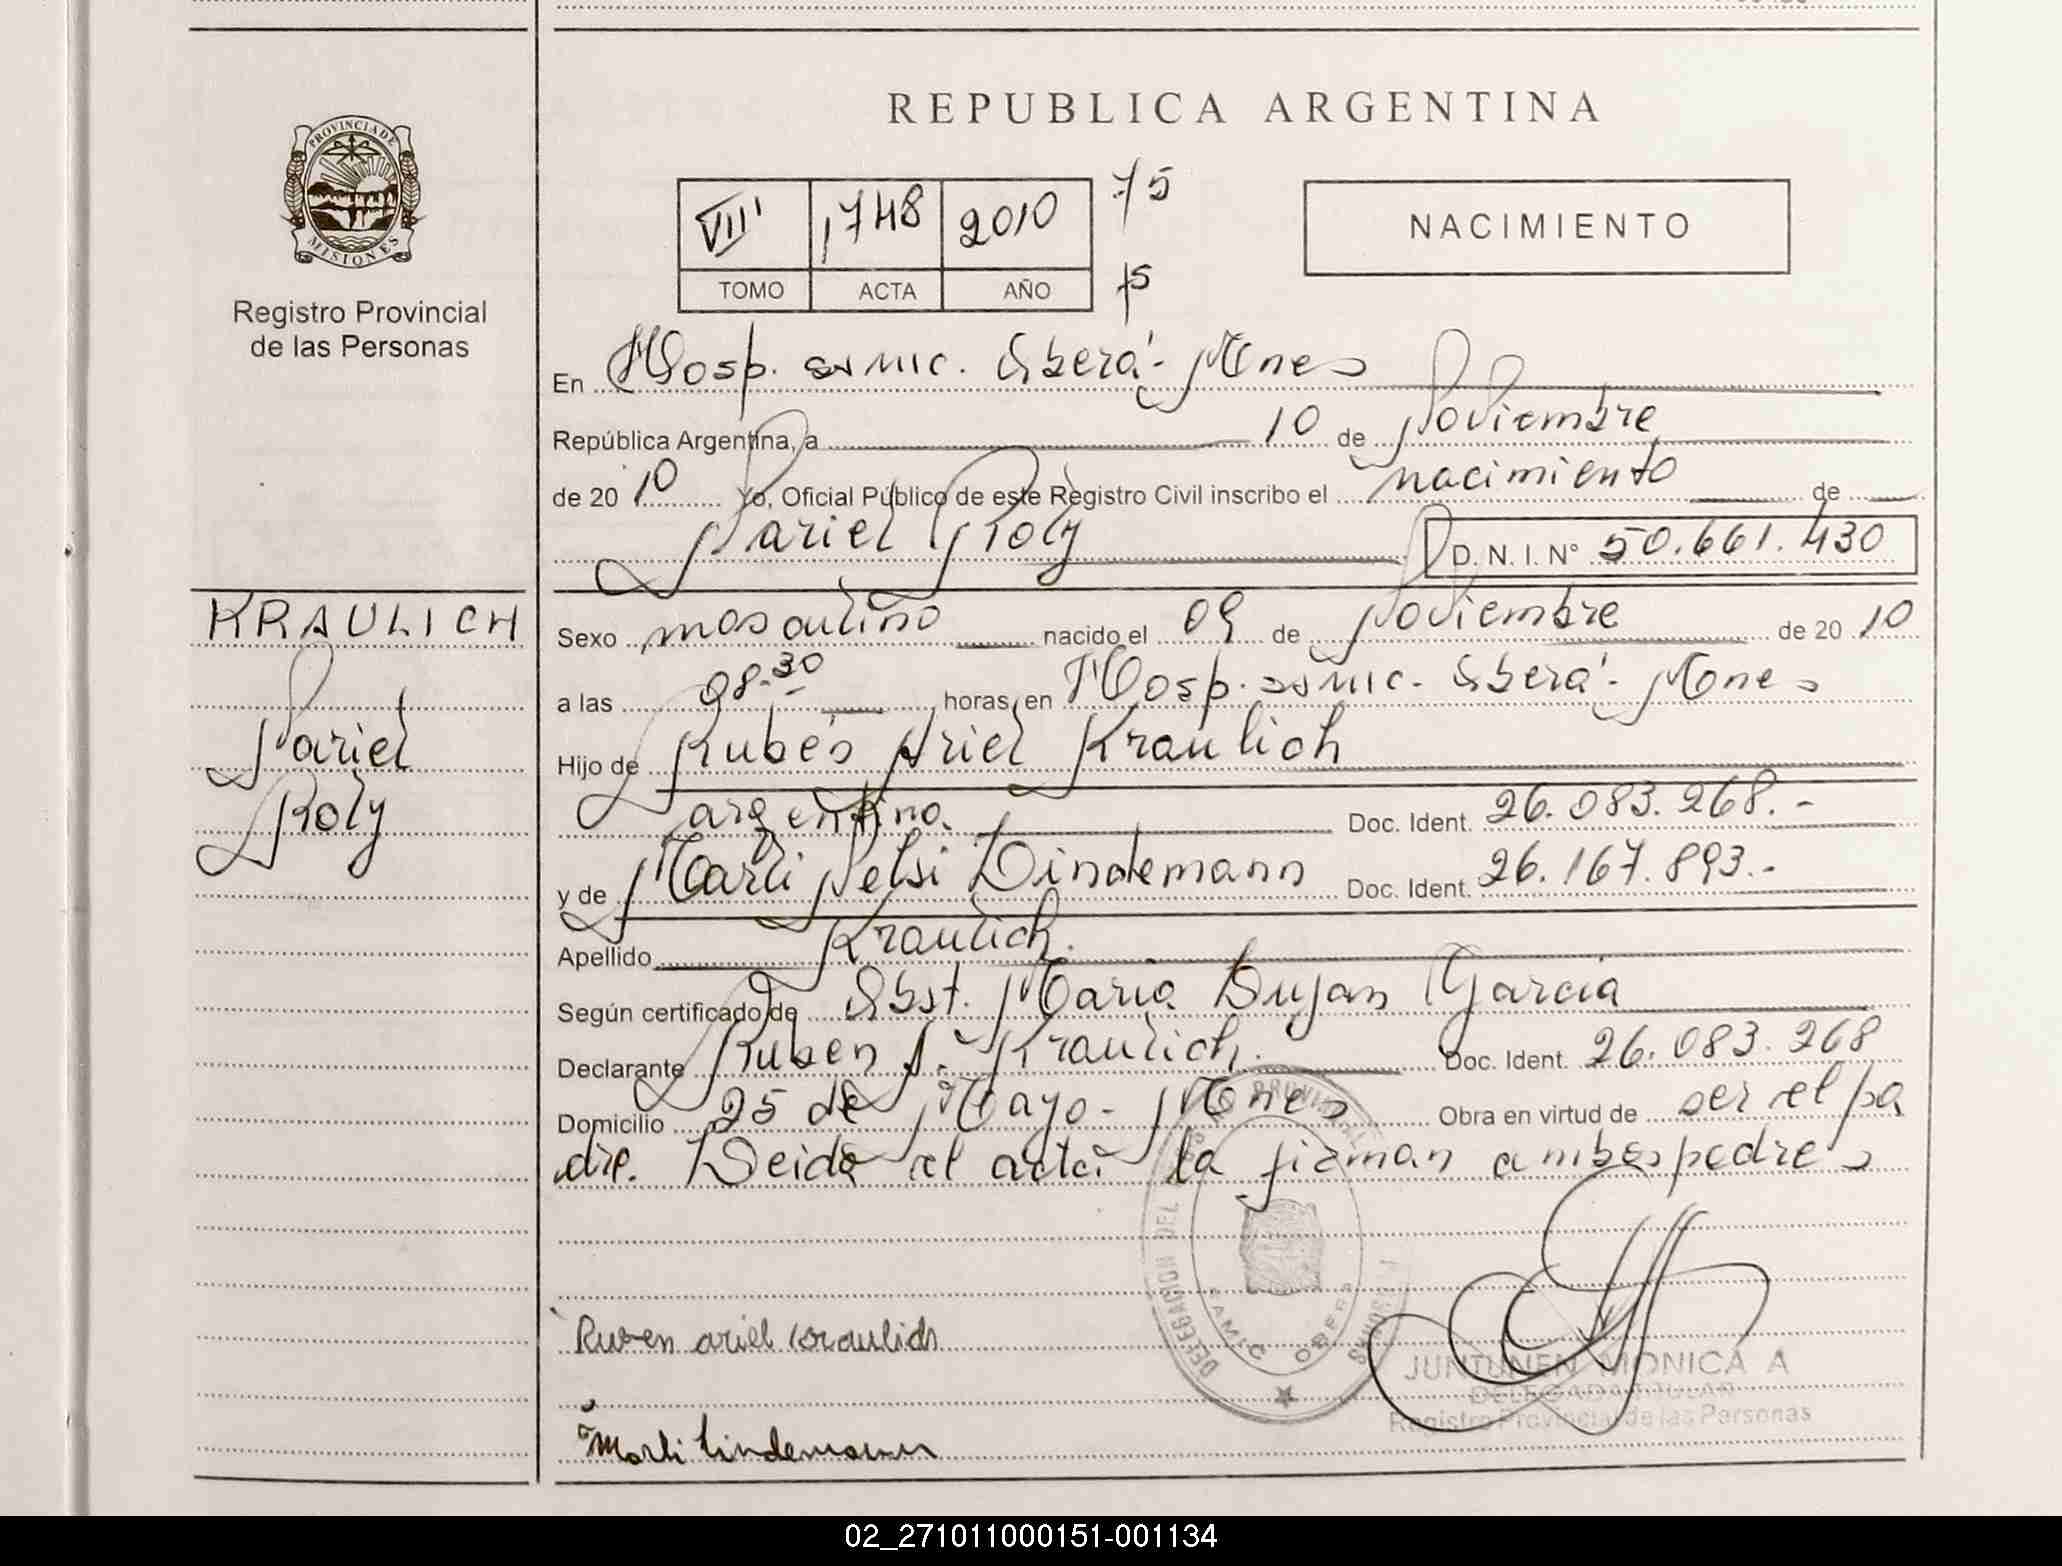 REPUBLICA ARGENTINA
PROVINCIA DE
MISIONES
Registro Provincial
de las Personas
VIII 1748 2010 75
TOMO ACTA AÑO 75
NACIMIENTO
En Hosp. samic. Oberá - Mnes
República Argentina, a 10 de Noviembre
de 20 10 Yo, Oficial Público de este Registro Civil inscribo el nacimiento de
Nariel Roly D. N. I. N° 50.661.430
KRAULICH
Nariel
Roly
Sexo masculino nacido el 09 de Noviembre de 20 10
a las 08.30 horas, en Hosp. samic. Oberá - Mnes
Hijo de Rubés Ariel Kraulich
argentino. Doc. Ident. 26.083.268.-
y de Marli Nelsi Lindemann Doc. Ident. 26.167.893.-
Apellido Kraulich.
Según certificado de Obst. Maria Dujan Garcia
Declarante Ruben A. Kraulich. Doc. Ident. 26.083.268
Domicilio 25 de Mayo - Mnes Obra en virtud de ser el pa
dre. Leida el acta la firman ambos padres
DELEGACION DEL
SAMIC OBERA
Ruben ariel kraulich
Marli Lindemann
JUNTUNEN MONICA A
DELEGADA TITULAR
Registro Provincial de las Personas
02_271011000151-001134